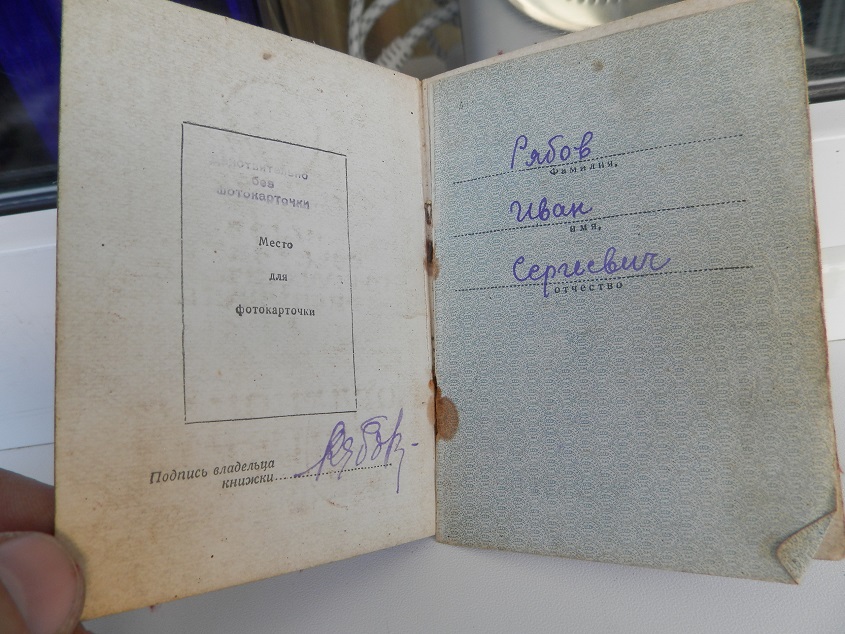 Действительно
без
фотокарточки
Место
для
фотокарточки
Подпись владельца
книжки
Рябов
фамилия,
Иван
имя,
Сергеевич
отчество